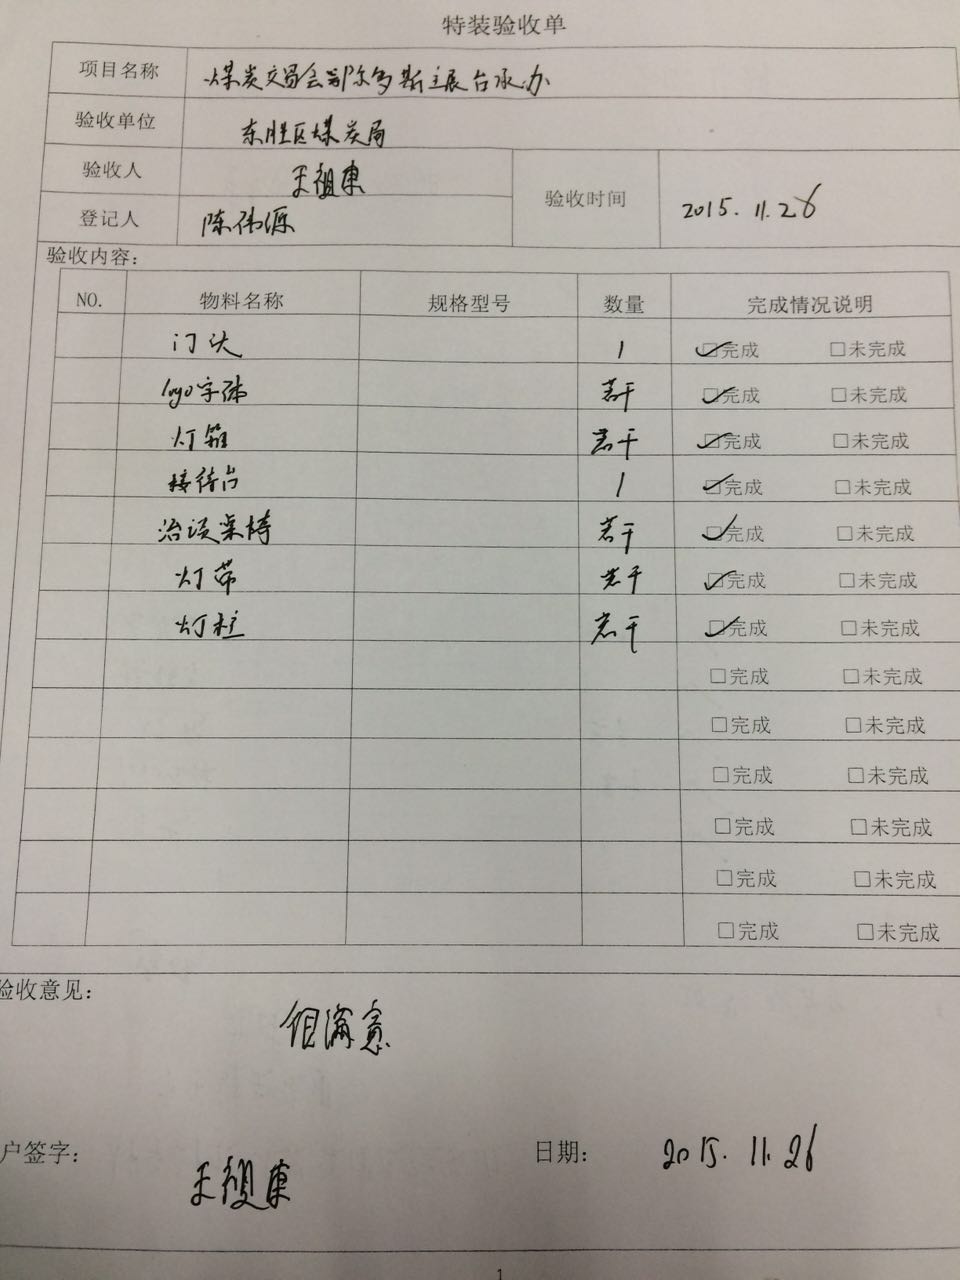 特装验收单
项目名称 煤炭交易会鄂尔多斯主展台承办
验收单位 东胜区煤炭局
验收人 王祖东 验收时间 2015.11.26
登记人 陈伟源
验收内容:
NO. 物料名称 规格型号 数量 完成情况说明
门头 1 ☑完成 □未完成
logo字体 若干 ☑完成 □未完成
灯箱 若干 ☑完成 □未完成
接待台 1 ☑完成 □未完成
洽谈桌椅 若干 ☑完成 □未完成
灯带 若干 ☑完成 □未完成
灯柱 若干 ☑完成 □未完成
□完成 □未完成
□完成 □未完成
□完成 □未完成
□完成 □未完成
□完成 □未完成
□完成 □未完成
验收意见:
满意
户签字: 王祖东 日期: 2015.11.26
1